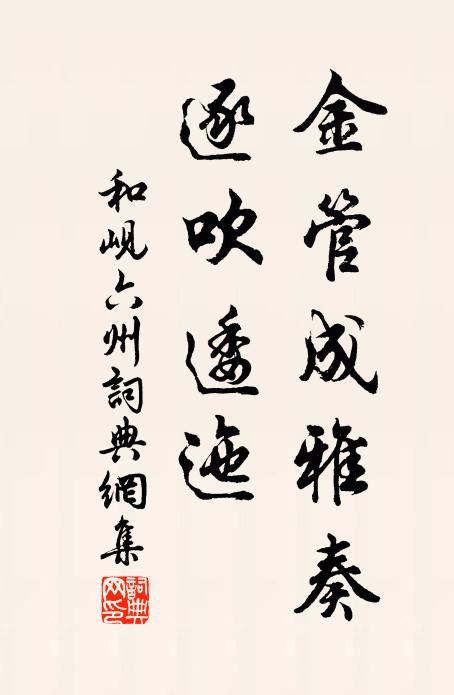 金管成雅奏
逐吹逶迤
和峴六州詞典網集
詞典网印